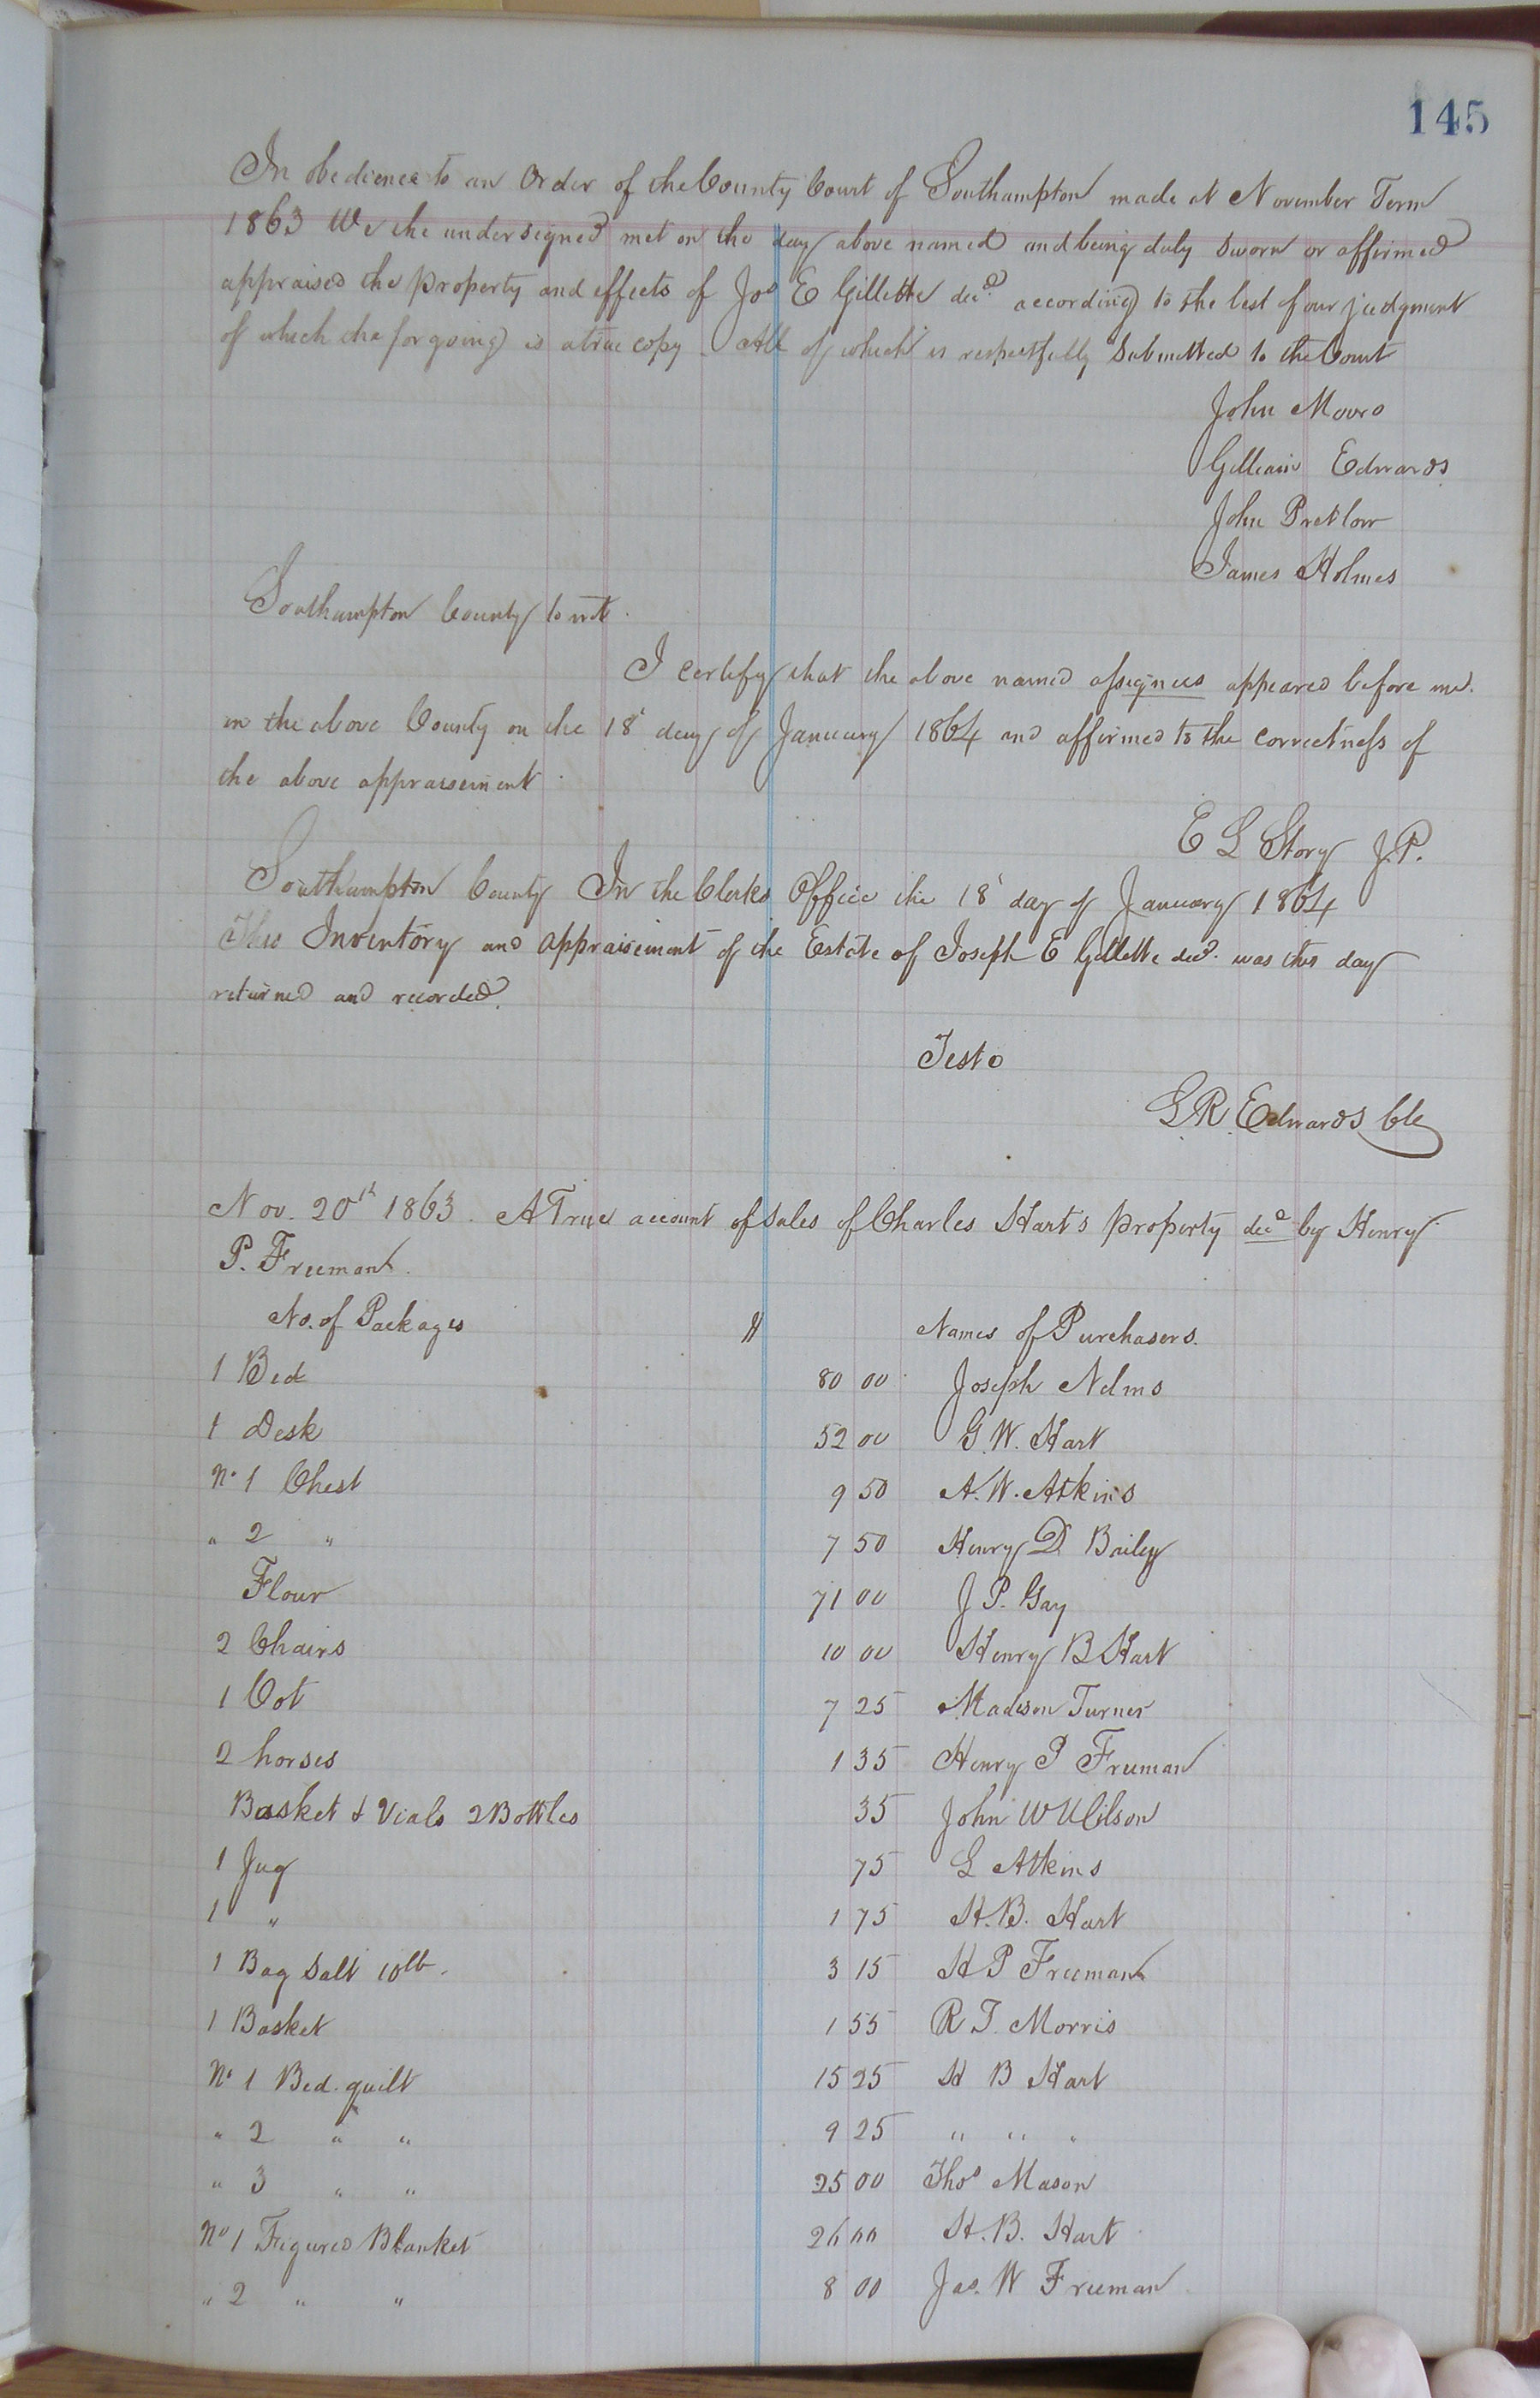 145
In obedience to an Order of the County Court of Southampton made at November Term
1863 We the undersigned met on the day above named and being duly sworn or affirmed
appraised the property and effects of Jos E Gillette decd. according to the best of our judgment
of which the forgoing is a true copy. All of which is respectfully submitted to the Court
John Moore
Gilliam Edwards
John Pretlow
James Holmes
Southampton County to wit.
I certify that the above named assignees appeared before me.
in the above County on the 18' day of January 1864 and affirmed to the correctness of
the above appraisement.
E L Story J.P.
Southampton County In the Clerks Office the 18' day of January 1864
This Inventory and appraisement of the Estate of Joseph E Gillette decd. was this day
returned and recorded.
Teste
L R Edwards Clk
Nov. 20th 1863. A True account of sales of Charles Hart's property decd by Henry
P. Freeman.
No. of Packages $ Names of Purchasers.
1 Bed 80 00 Joseph Nelms
1 Desk 52 00 G. W. Hart
No. 1 Chest 9 50 A. W. Atkins
" 2 " 7 50 Henry D. Bailey
Flour 71 00 J P. Gay
2 Chairs 10 00 Henry B Hart
1 Cot 7 25 Madison Turner
2 horses 1 35 Henry P Freeman
Basket & Vials 2 Bottles 35 John W Wilson
1 Jug 75 L Atkins
1 " 1 75 H. B. Hart
1 Bag Salt 10lb. 3 15 H P Freeman
1 Basket 1 55 R T. Morris
No 1 Bed. quilt 15 25 H B Hart
" 2 " " 9 25 " " "
" 3 " " 25 00 Thos Mason
No 1 Figured Blanket 26 00 H. B. Hart
" 2 " " 8 00 Jas. W Freeman